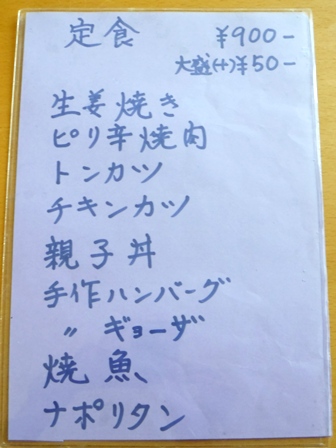 定食 ¥900-
大盛(+)¥50-
生姜焼き
ピリ辛焼肉
トンカツ
チキンカツ
親子丼
手作ハンバーグ
〃 ギョーザ
焼魚
ナポリタン